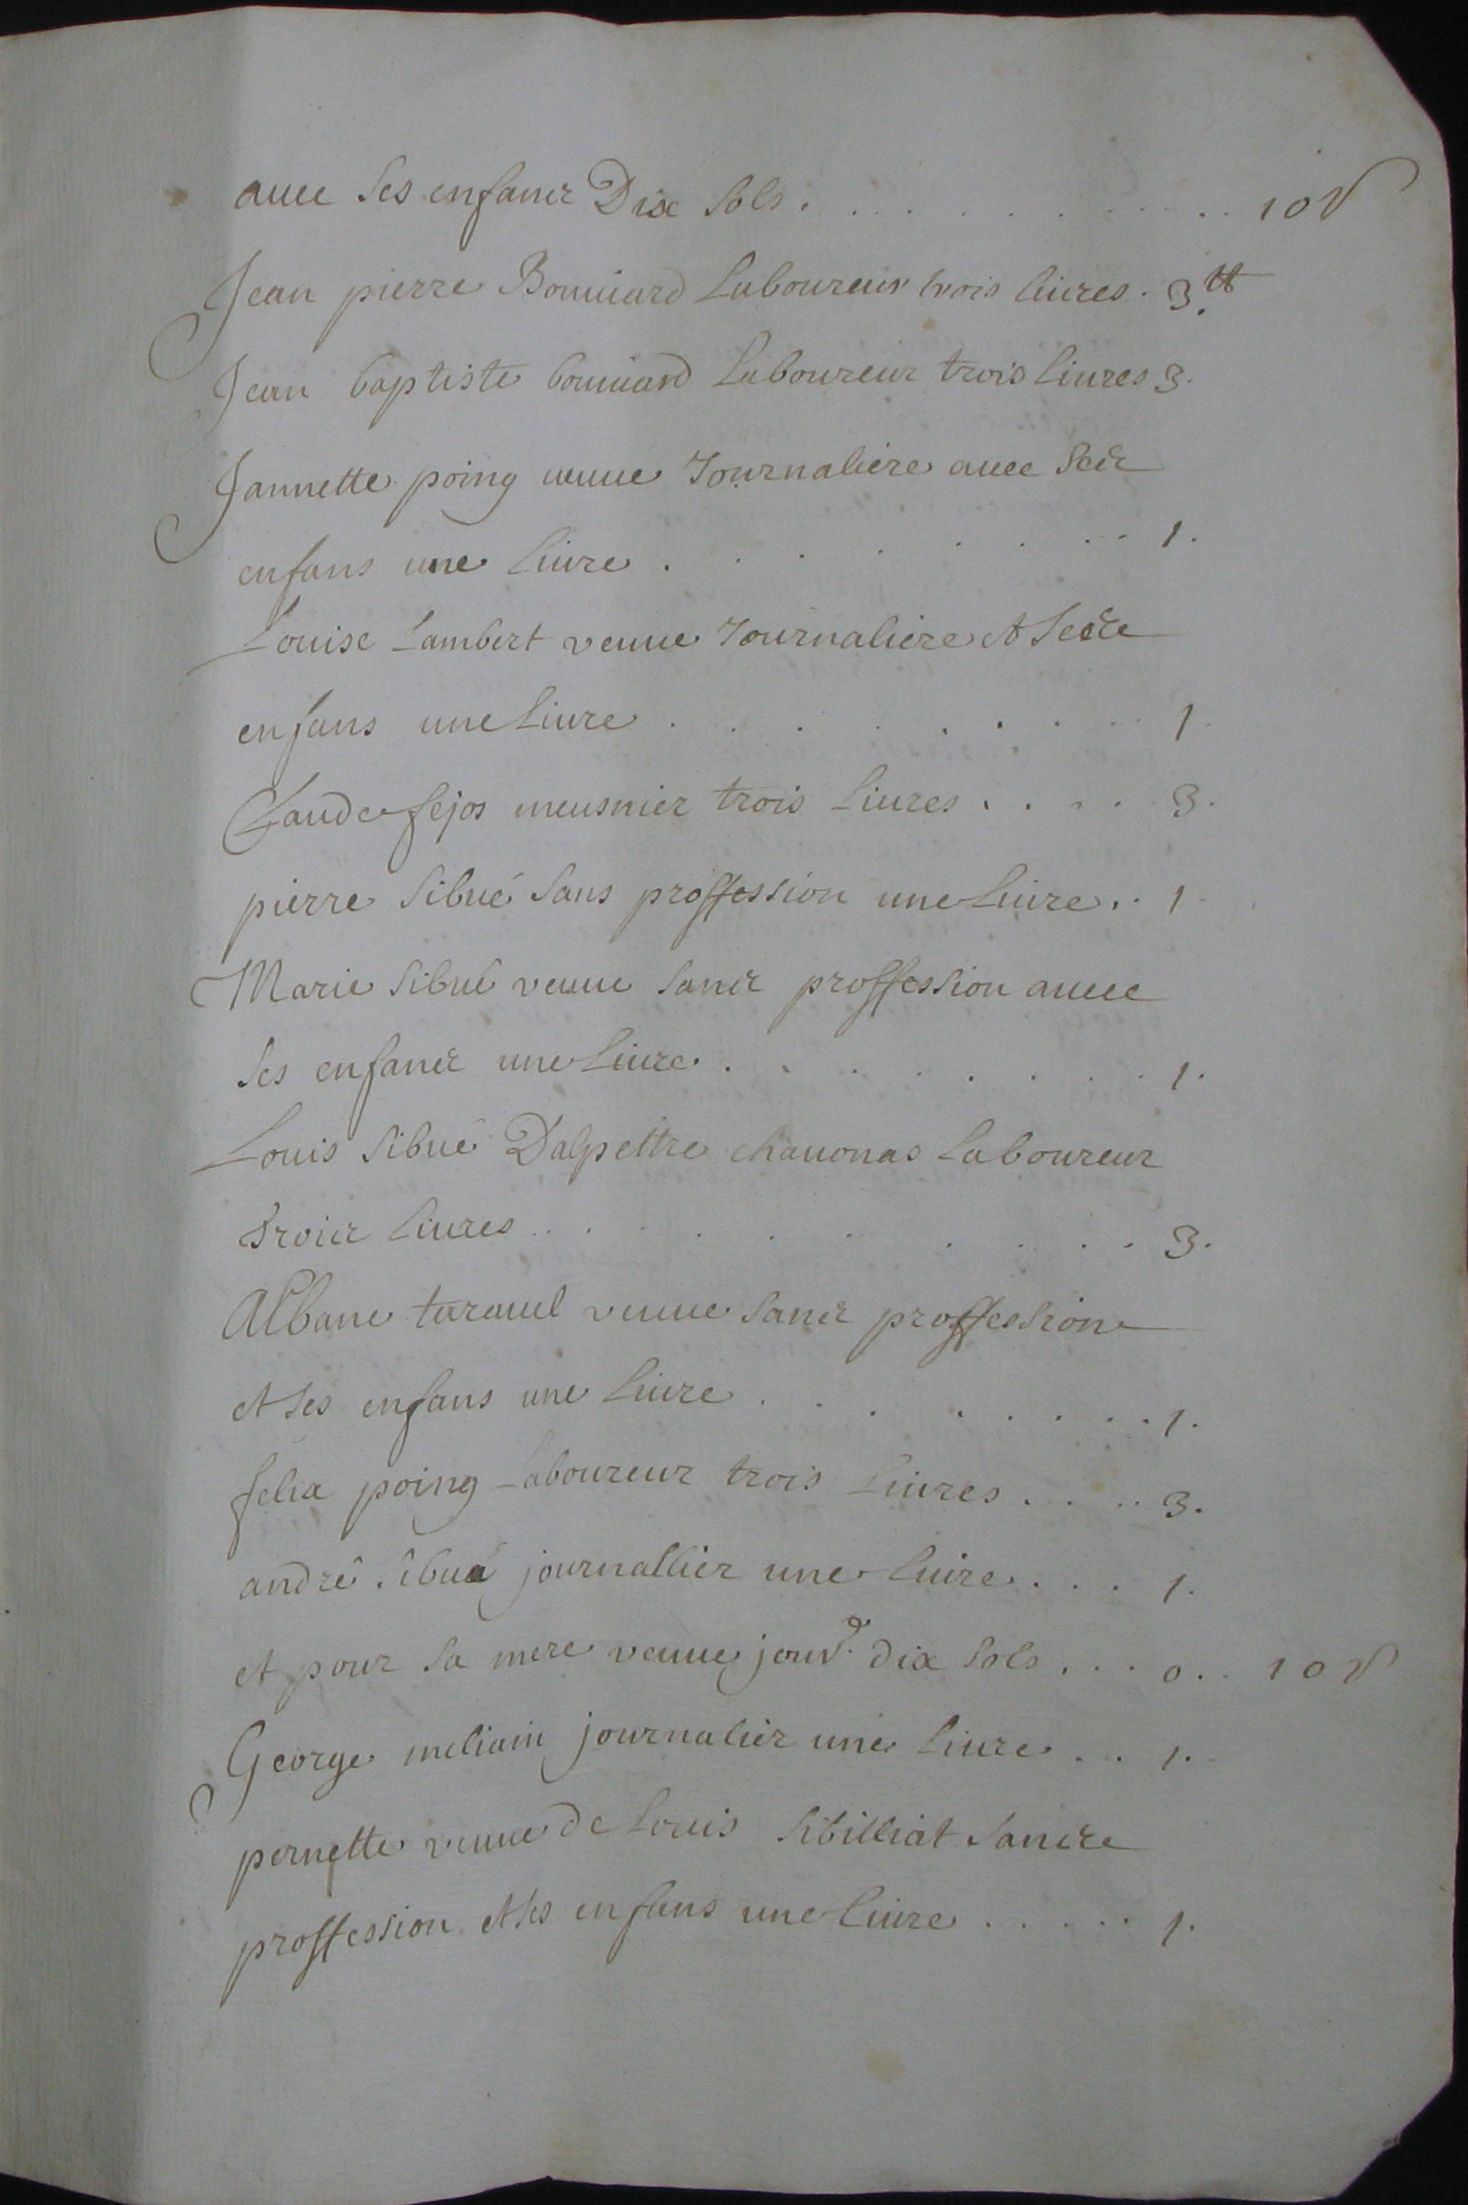 auec Ses enfans Dix Sols . . . . . . . . . . 10 s
Jean pierre Bouuiard Laboureur trois liures . 3 ₶
Jean baptiste bouuiard Laboureur trois liures 3.
Jannette poing ueuue Journaliere auec Ses
enfans une liure . . . . . . . . 1.
Louise Lambert veuue Journaliere et Ses
enfans une liure . . . . . . . . 1.
Claude fejos meusnier trois liures . . . . . 3.
pierre Sibué Sans proffession une liure . . 1.
Marie Sibué veuue Sans proffession auec
Ses enfans une liure . . . . . . . . 1.
Louis Sibué Dalpettre chauonas Laboureur
trois liures . . . . . . . . . 3.
Albane tarauel veuue Sans proffession
et Ses enfans une liure . . . . . . . . 1.
felix poing Laboureur trois liures . . . . 3.
andré Sibué journallier une liure . . . 1.
et pour Sa mere veuue jour.e dix Sols . . . 0 . . 10 s
George meliain journalier une liure . . . 1.
pernette veuue de Louis Sibilliat Sans
proffession et Ses enfans une liure . . . . . 1.